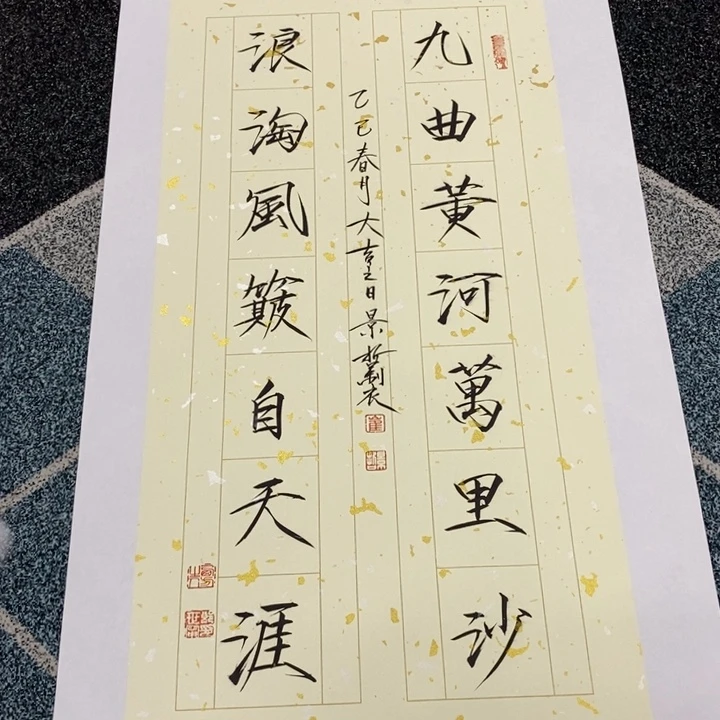 九曲黄河萬里沙
浪淘風簸自天涯
乙巳春月大吉之日景